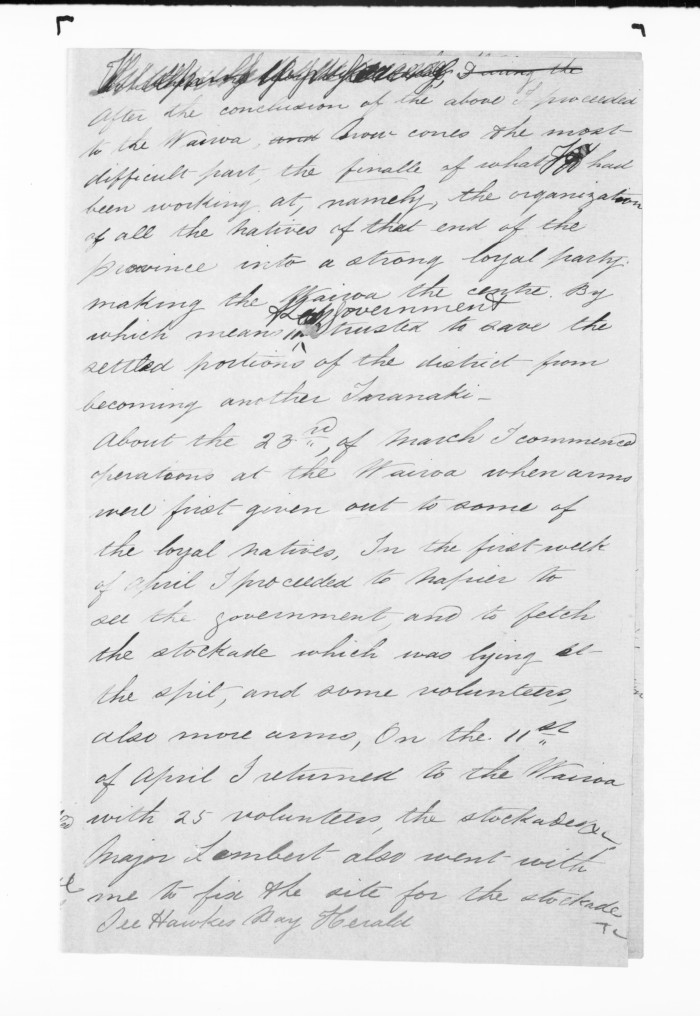 During the
After the conclusion of the above I proceeded
to the Wairoa, and Now comes the most
difficult part, the finalle of what I had
been working at, namely, the organization
of all the natives of that end of the
province into a strong loyal party.
making the Wairoa the centre. By
Government
which means trusted to save the
settled portions of the district from
becoming another Taranaki –
About the 23rd, of March I commenced
operations at the Wairoa when arms
were first given out to some of
the loyal natives, In the first week
of April I proceeded to Napier to
see the government, and to fetch
the stockade which was lying at
the spit, and some volunteers,
also more arms, On the 11st
of April I returned to the Wairoa
with 25 volunteers, the stockade &c
Major Lambert also went with
me to fix the site for the stockade
See Hawkes Bay Herald